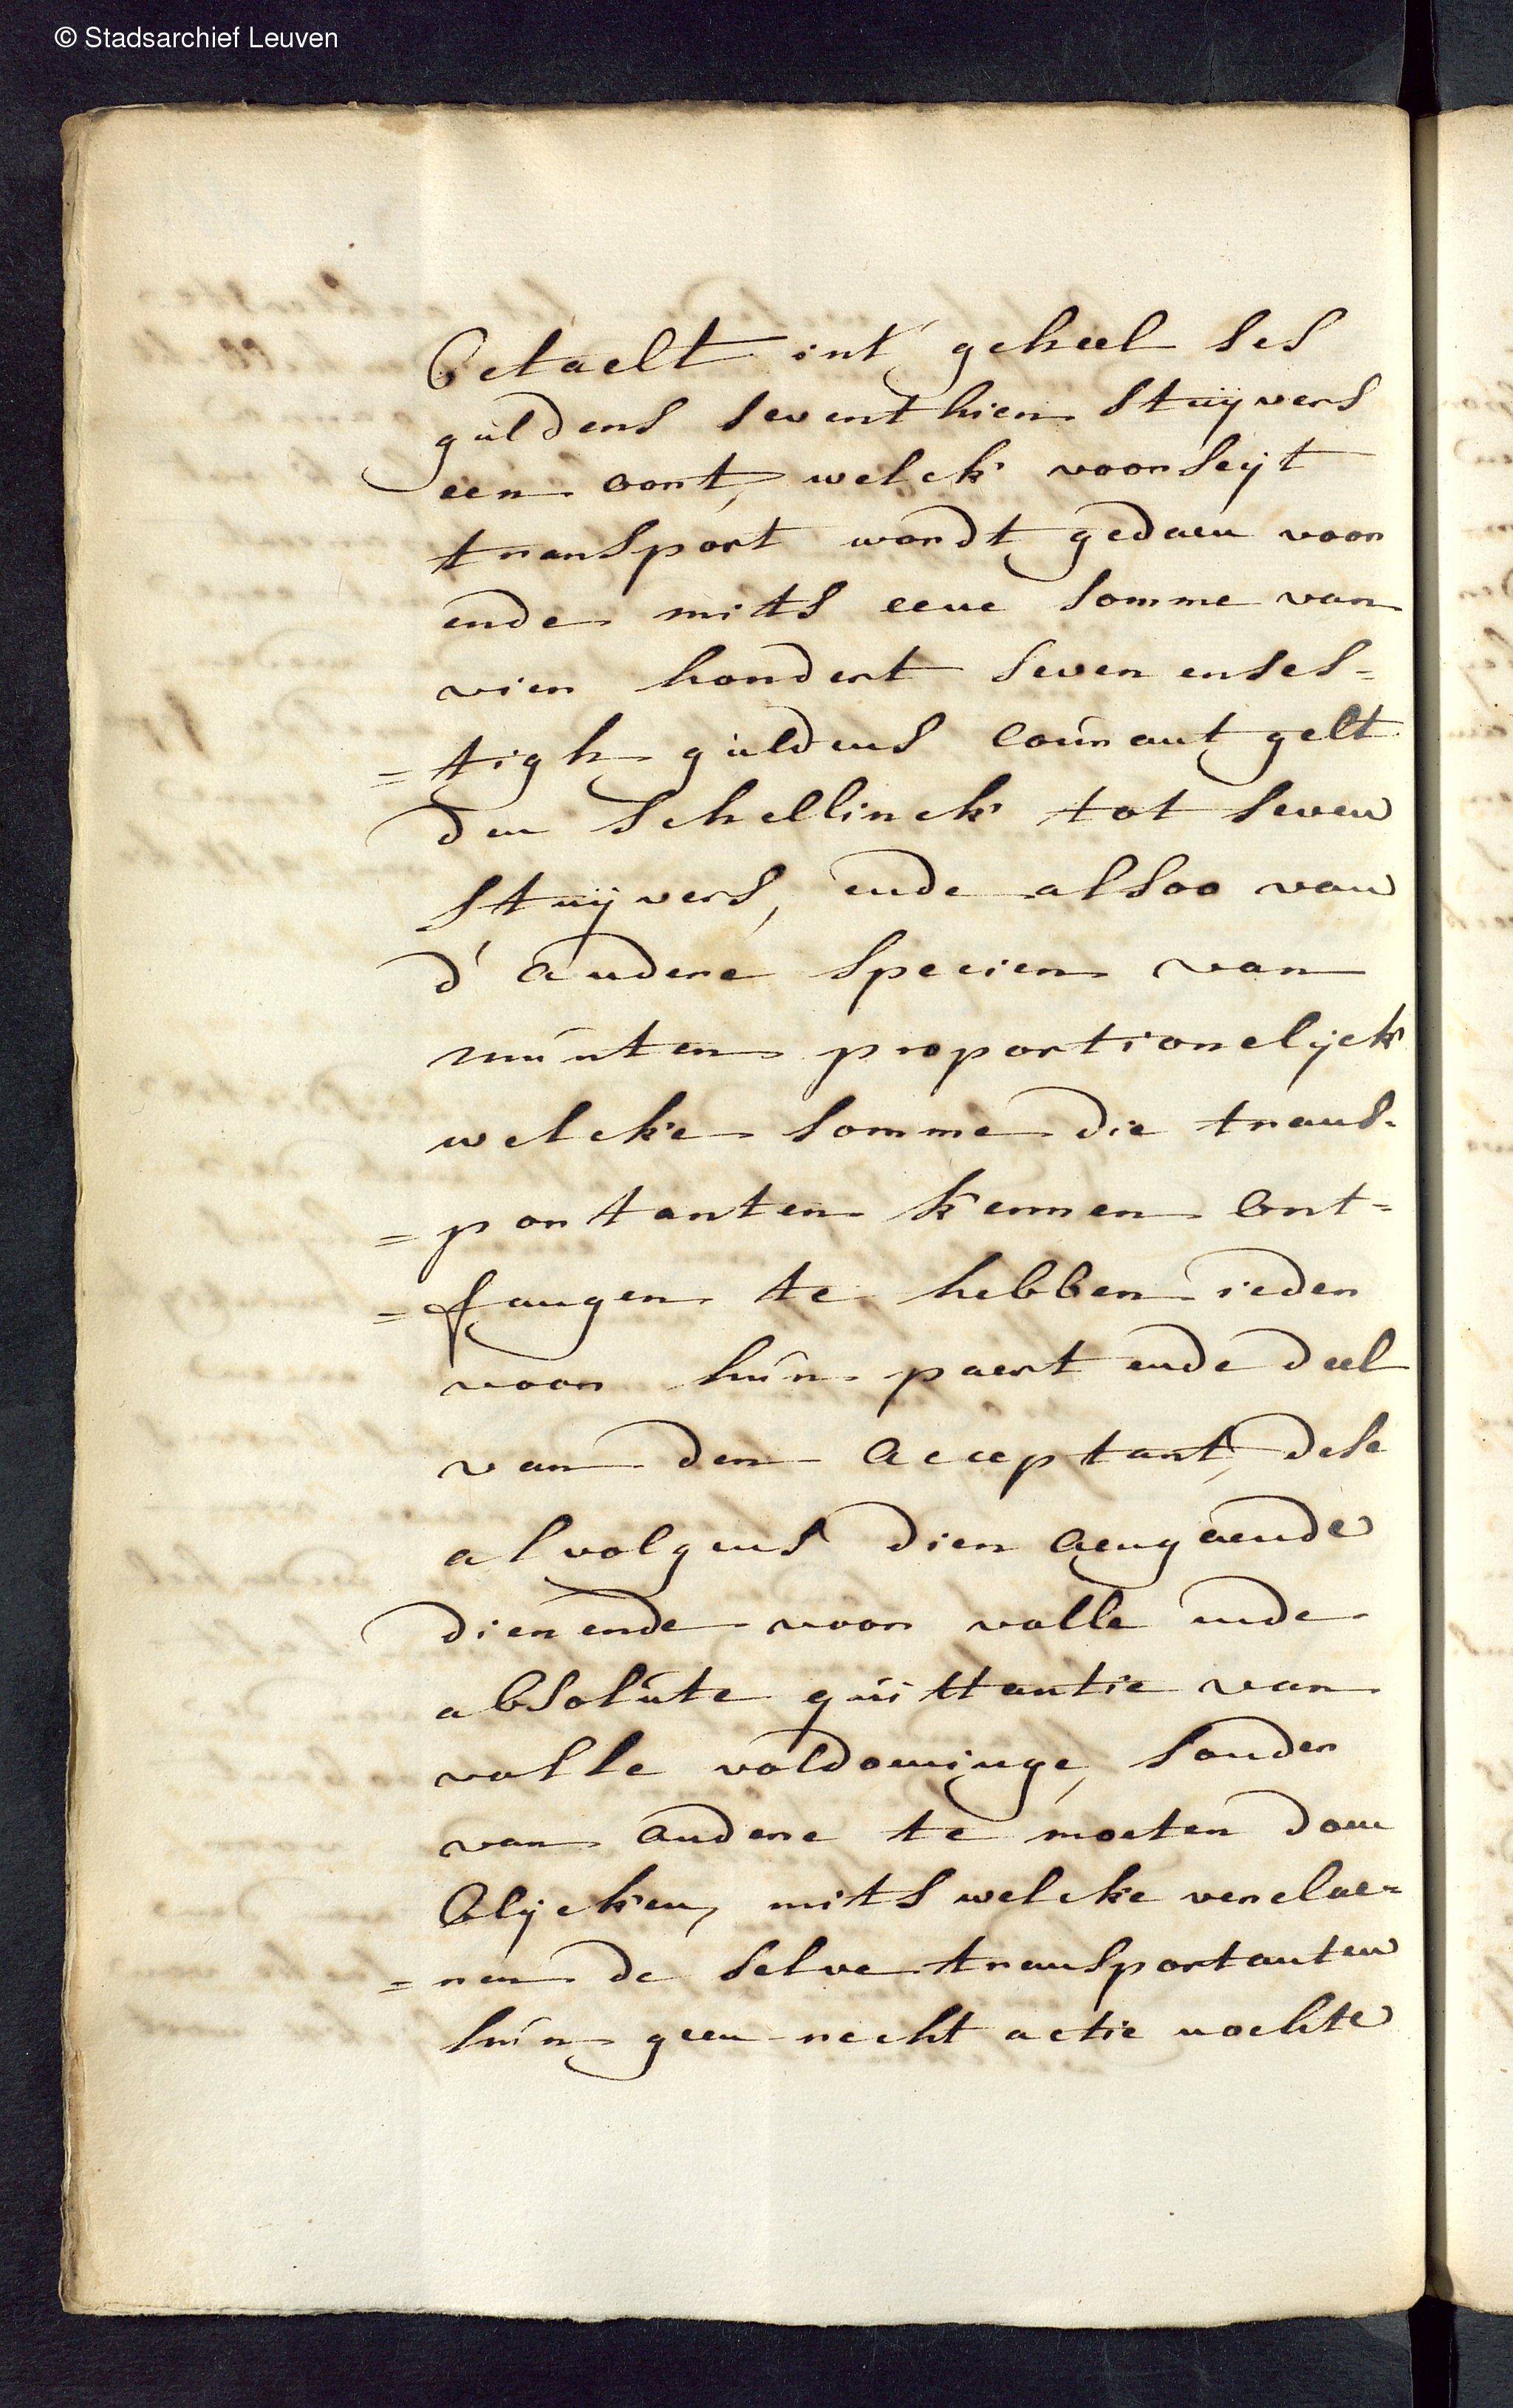 © Stadsarchief Leuven
betaelt int geheel ses
guldens seventhien stuijvers
een oort, welck voorseijt
transport wordt gedaen voor
ende mits eene somme van
vier hondert seven enses=
=tigh guldens courant gelt
den schellinck tot seven
stuijvers, ende alsoo van
d'andere specien van
munten proportionelijck
welcke somme die trans-
=portanten kennen ont=
=fangen te hebben ieder
voor hun paert ende deel
van den acceptant, dese
alvolgens dien aengaende
dienende voor volle ende
absolute quittantie van
volle voldoeninge, sonder
van andere te moeten doen
blijcken, mits welcke verclae=
=ren de selve transportanten
hun geen recht actie nochte